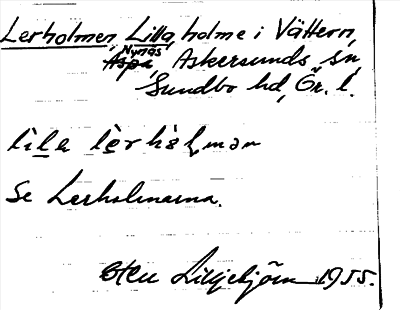 Lerholmen, Lilla, holme i Vättern,
Nynäs
Aspa, Askersunds sn,
Sundbo hd, Ör. l.
lìla lèrhòlmən
Se Lerholmarna.
Sten Lilliebjörn 1955.